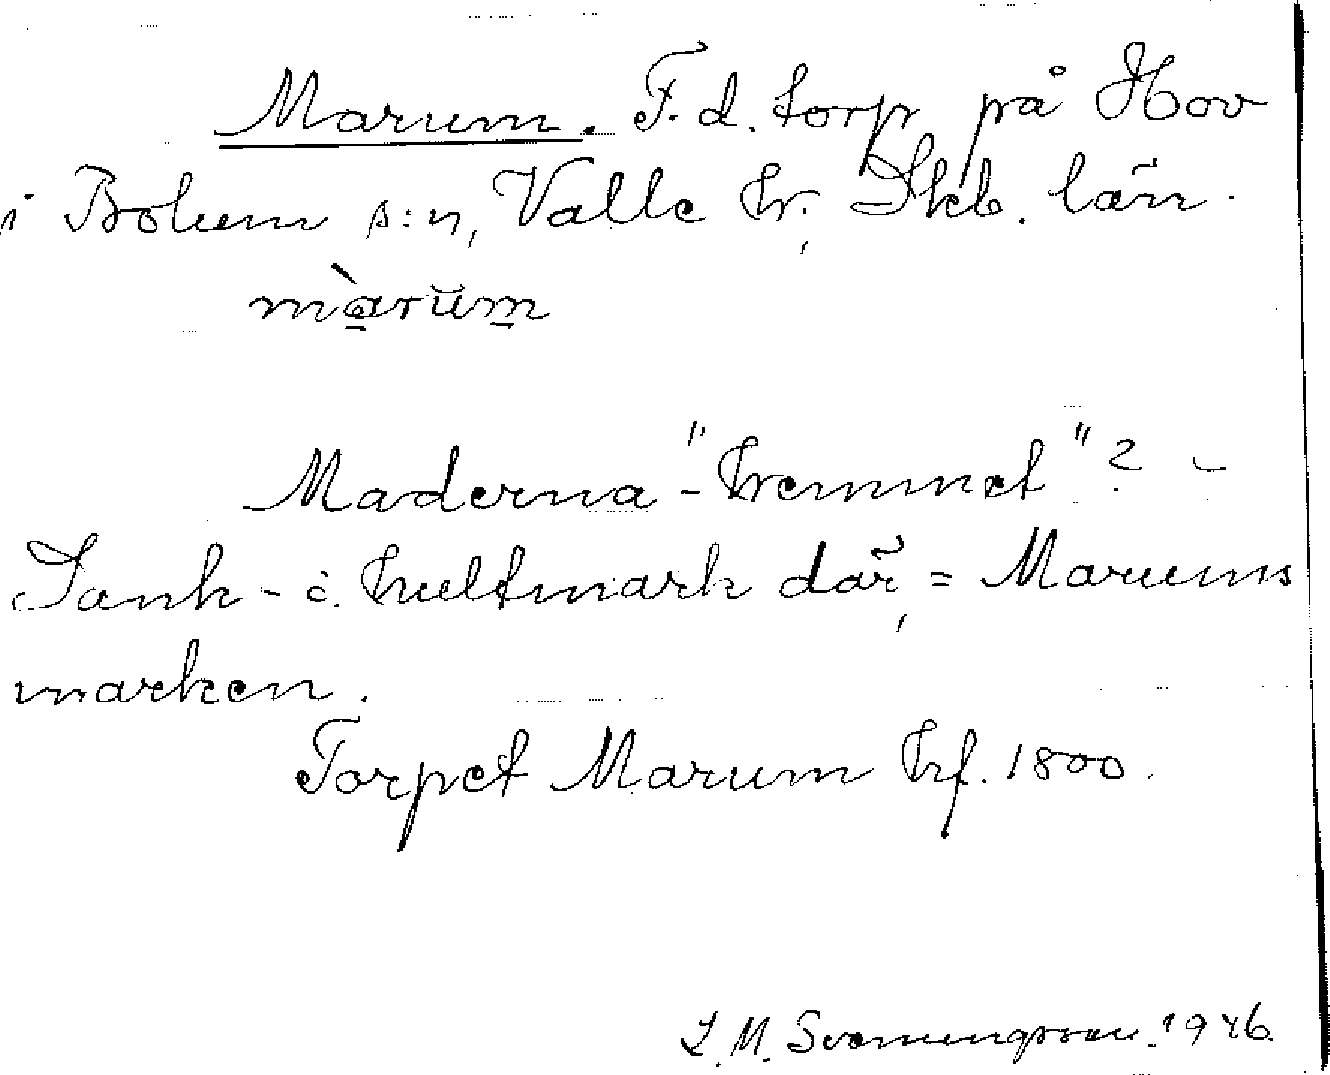 Marum. F. d. torp på Hov
i Bolum s:n, Valle hr, Skb. län.
màrŭm
Maderna - "hemmet"? -
Sank- o. tuvtmark där, = Marums
marken.
Torpet Marum hf. 1800.
L. M. Svenungsson. 1946.